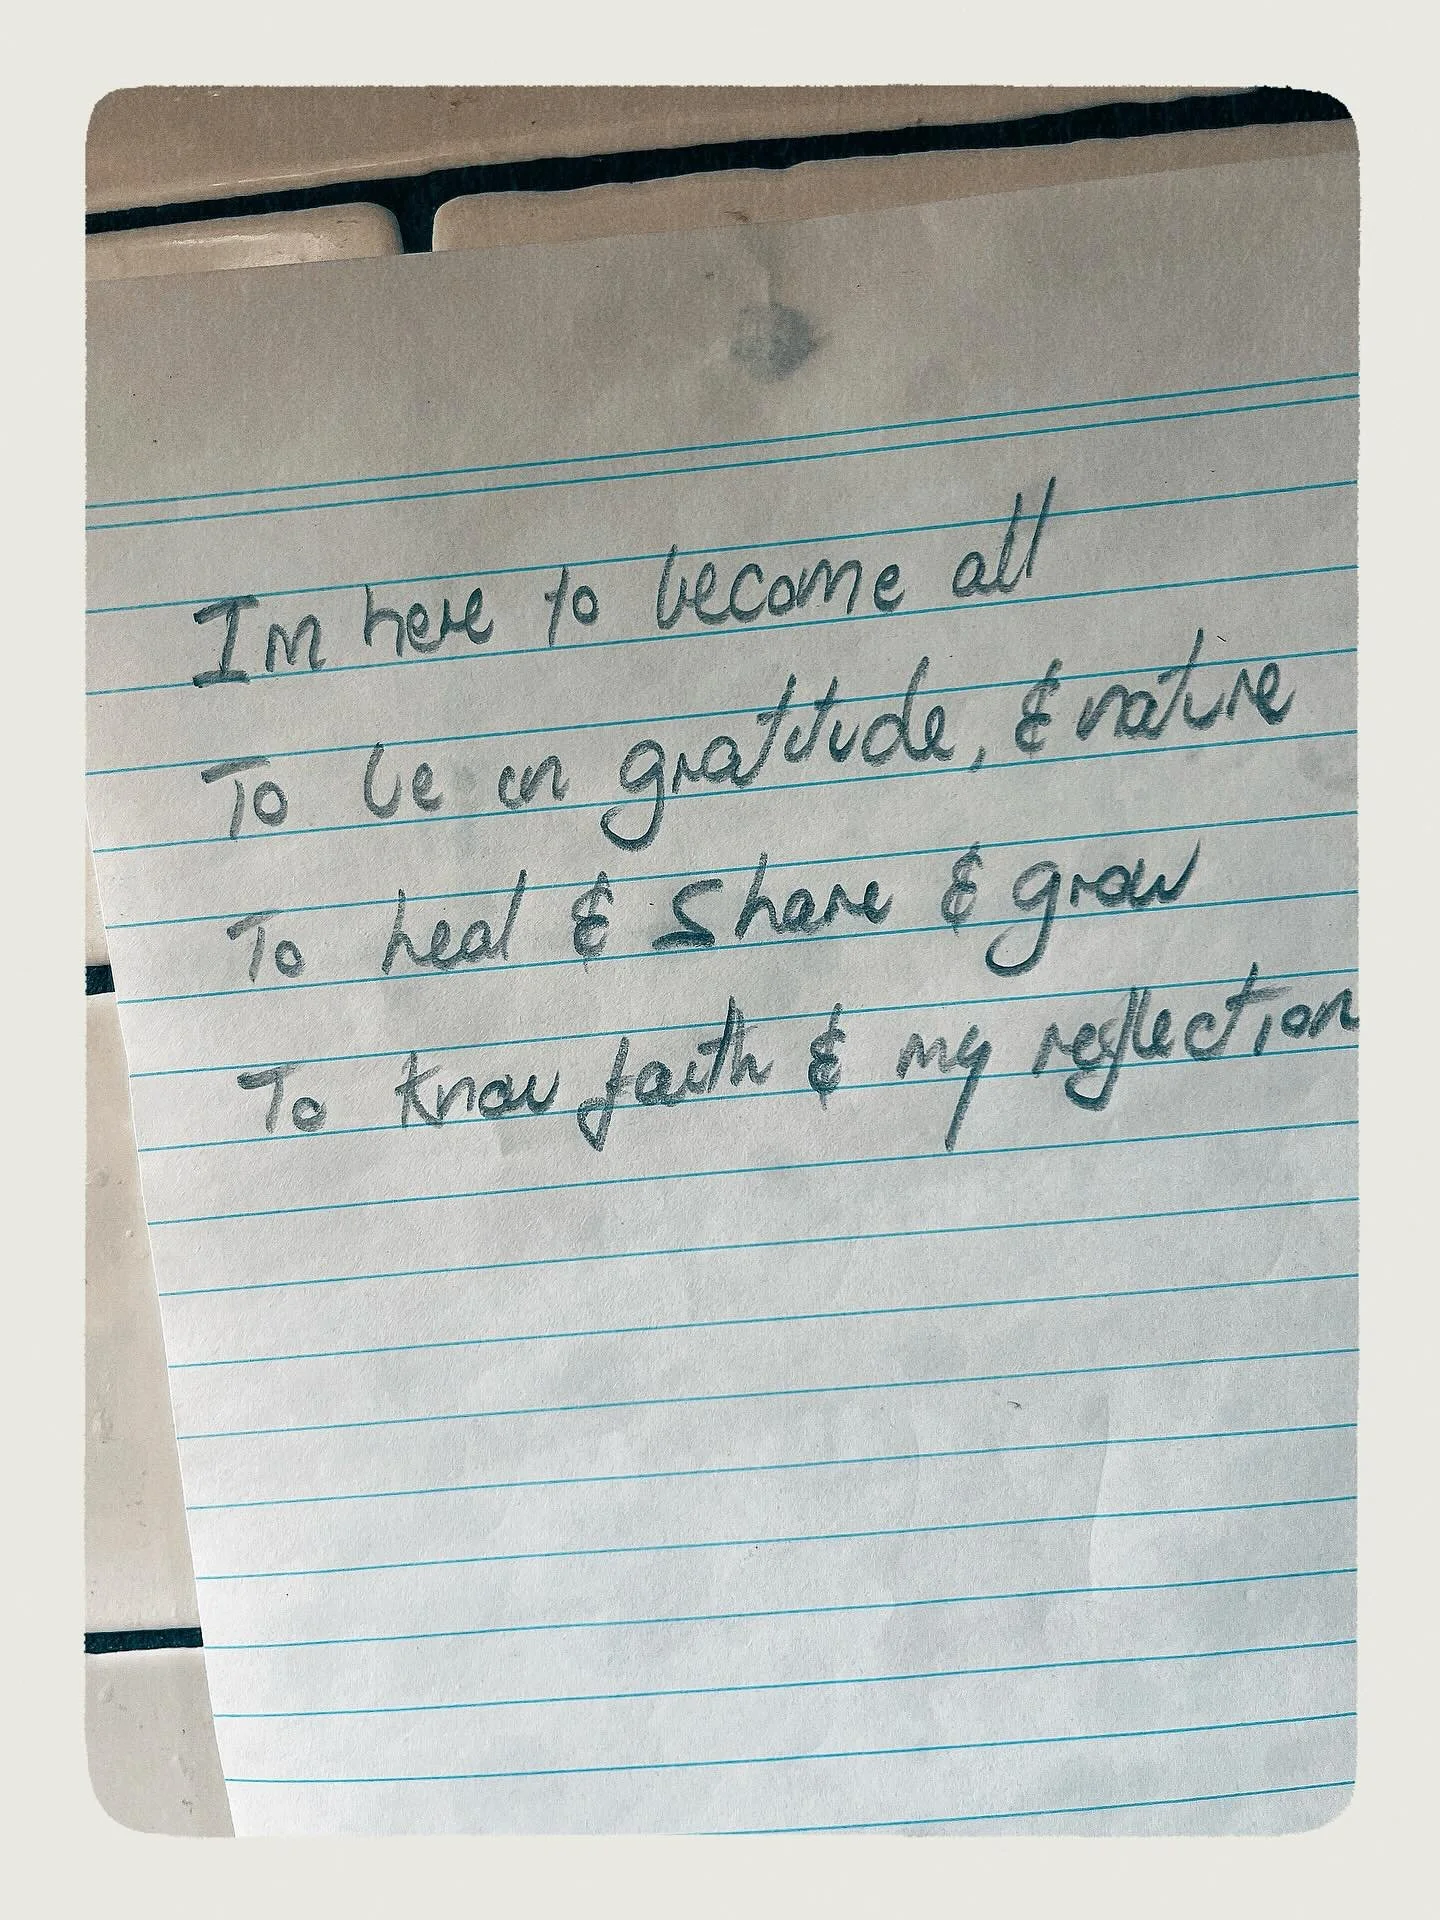 Im here to become all
To be in gratitude, & nature
To heal & share & grow
To know faith & my reflection